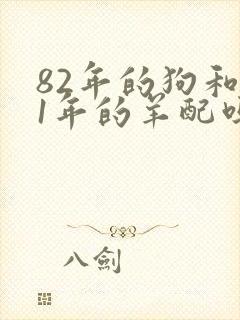 82年的狗和
1年的羊配
八劍